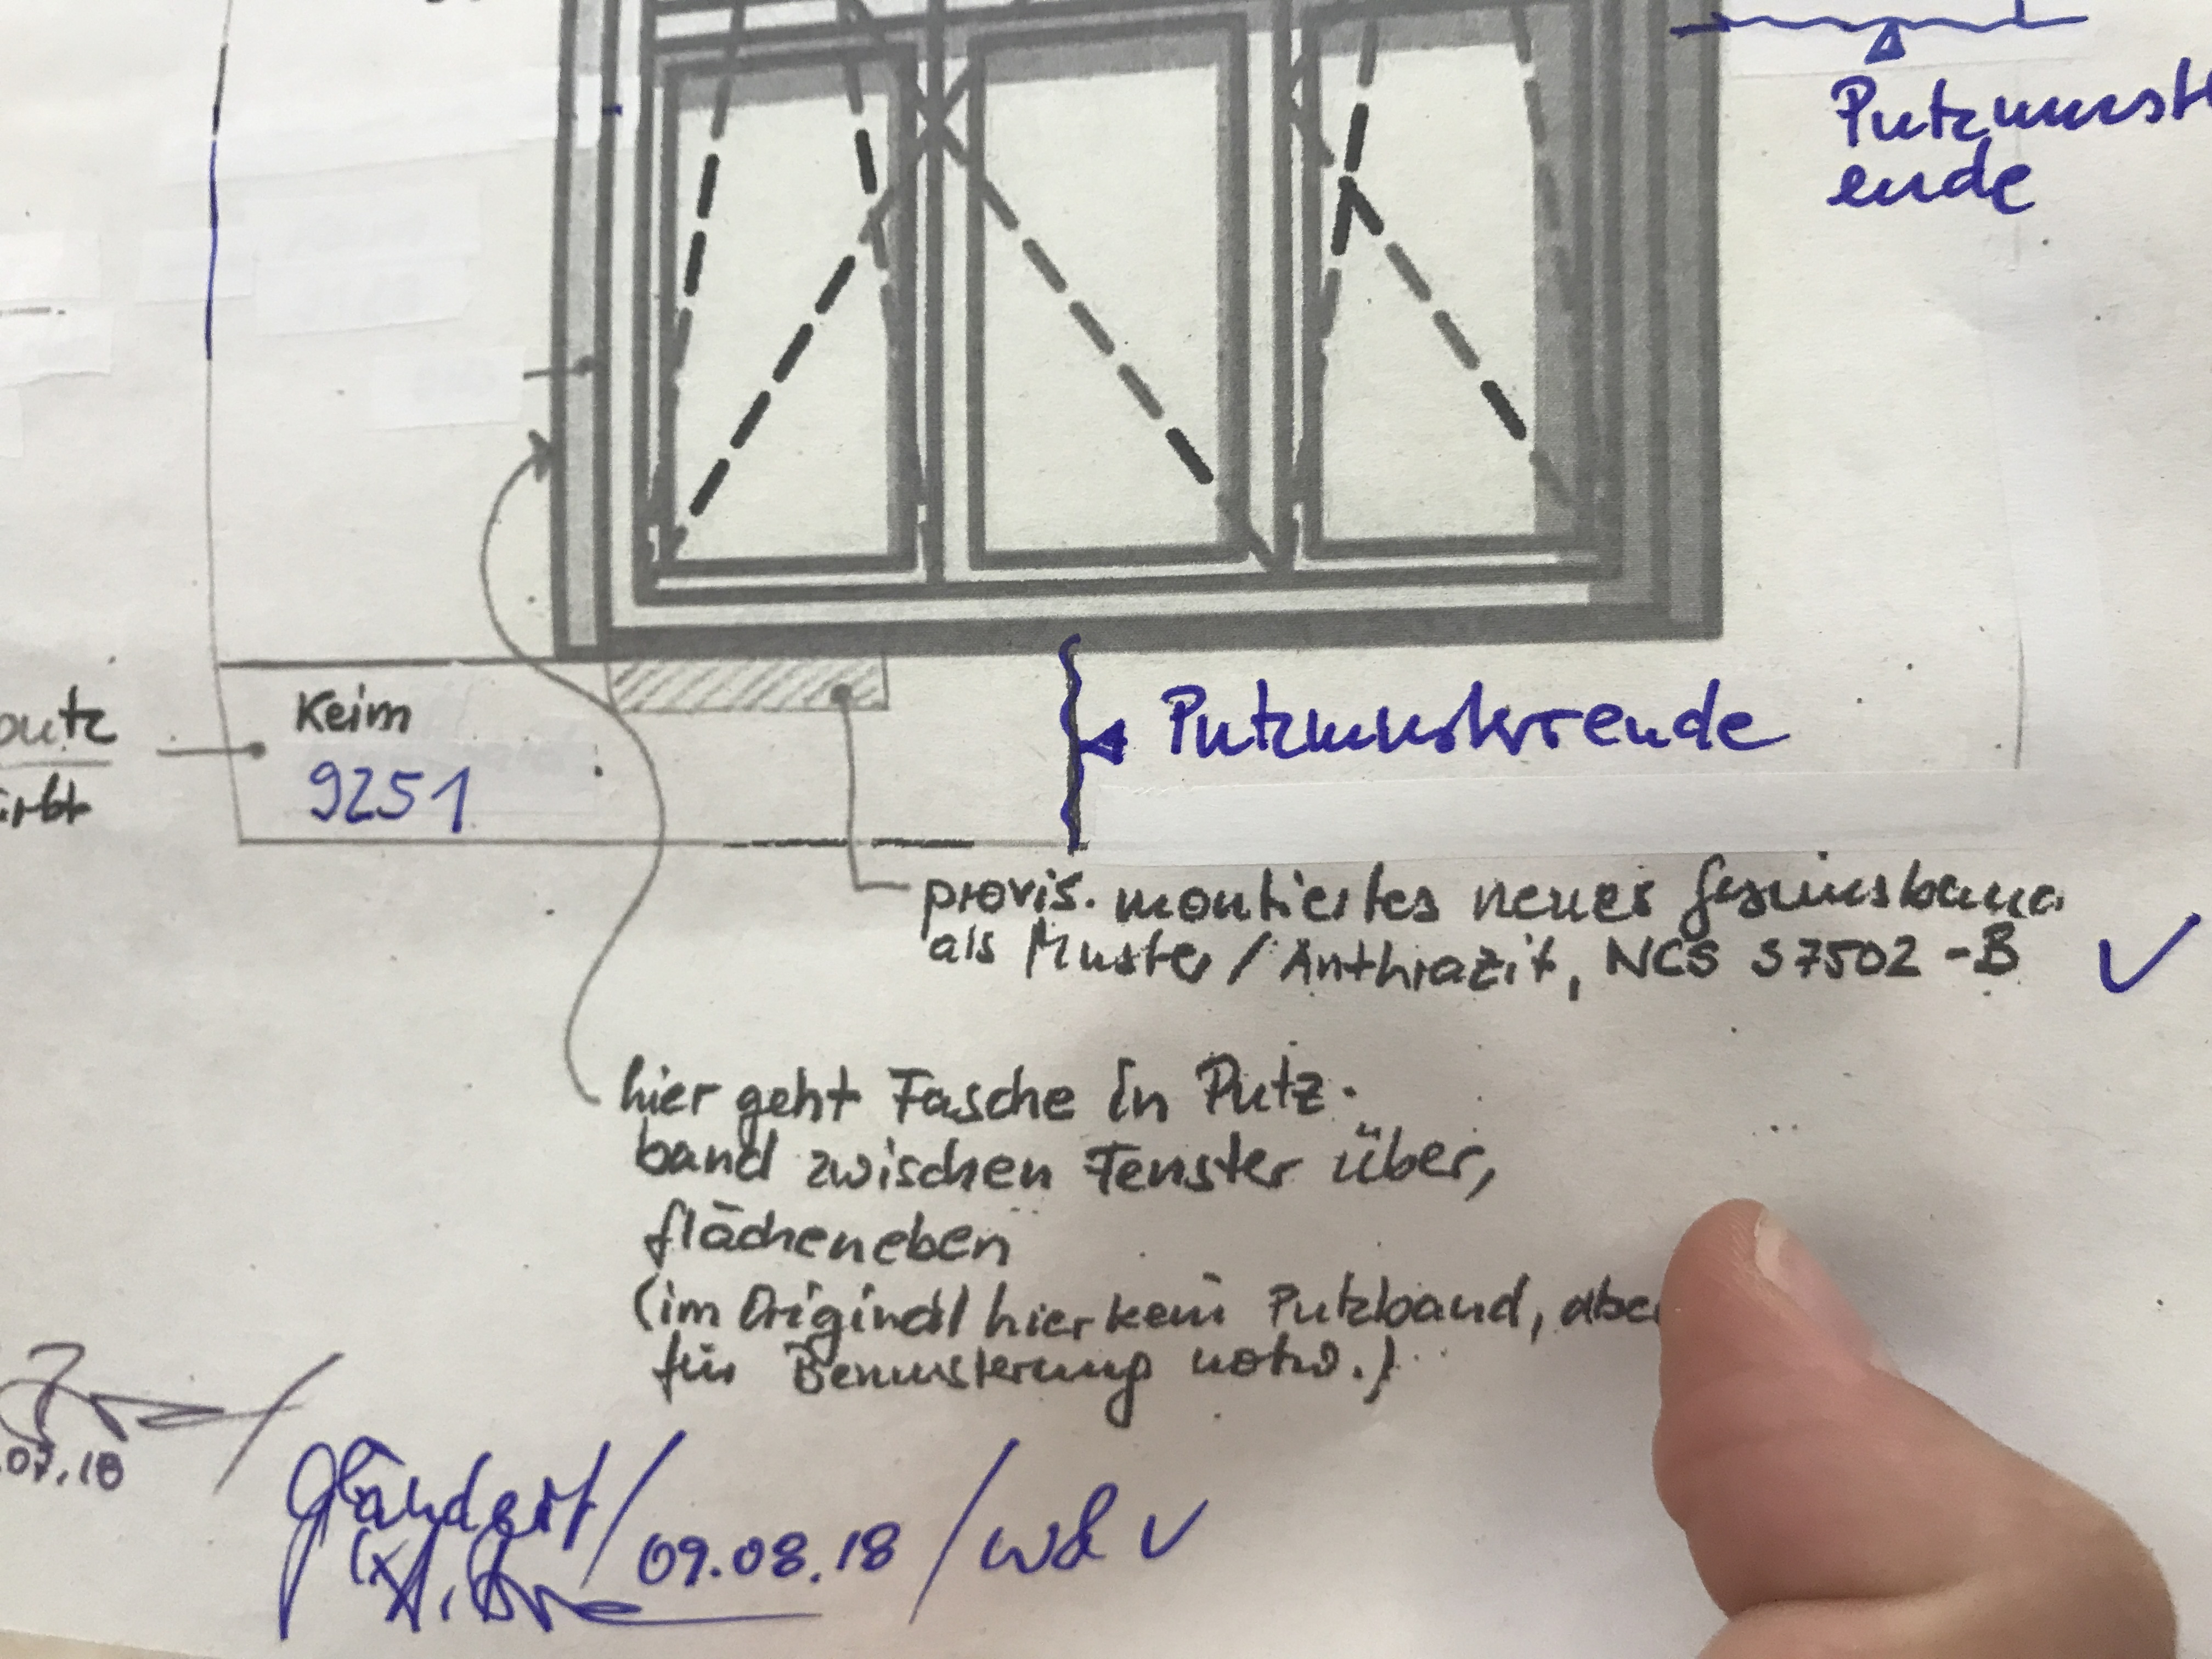 Putzmust
ende
putz
Keim
9251
Putzmusterende
provis. montiertes neues Gesimsband
als Muster / Anthrazit, NCS S7502-B ✓
hier geht Fasche in Putz-
band zwischen Fenster über,
flächeneben
(im Original hier kein Putzband, aber
für Bemusterung notw.)
.07.18
geändert / 09.08.18 /